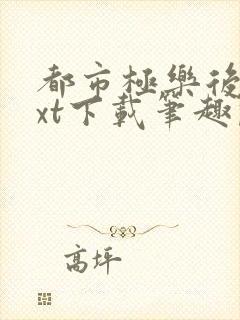 都市極樂後
xt下載筆趣
高坪